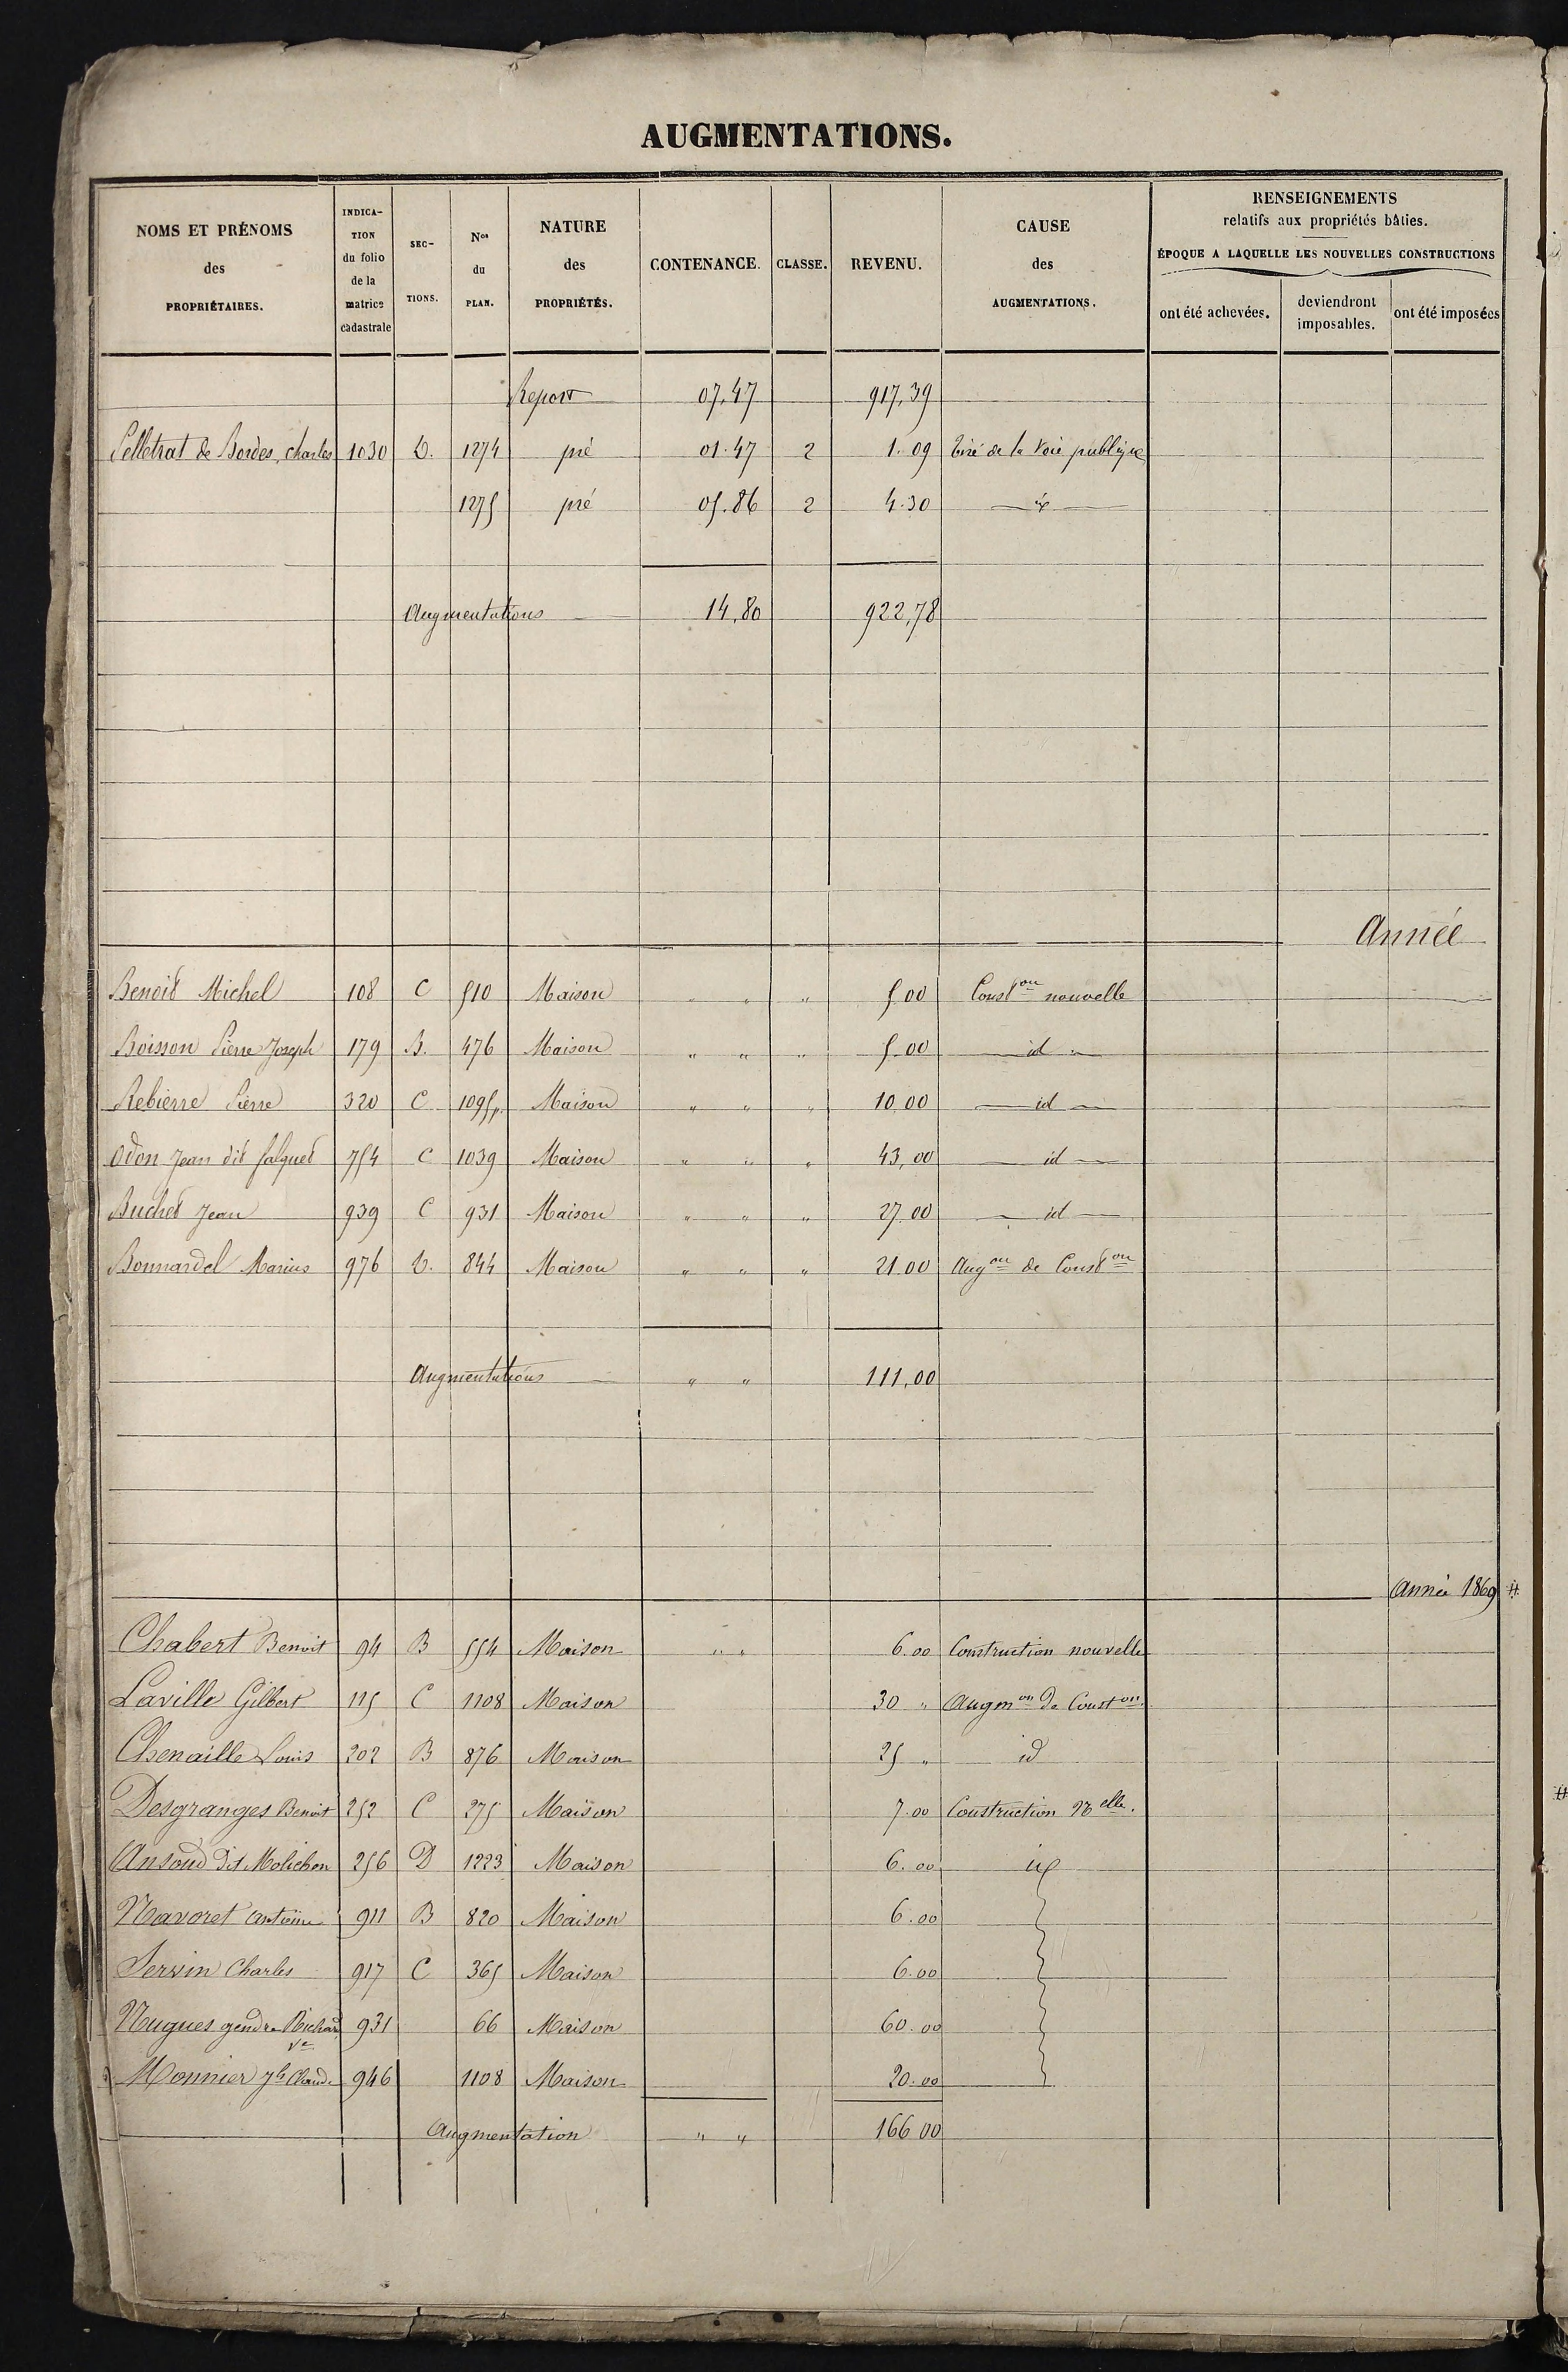 AUGMENTATIONS.
NOMS ET PRÉNOMS des PROPRIÉTAIRES. | INDICATION du folio de la matrice cadastrale | SECTIONS. | Nos du PLAN. | NATURE des PROPRIÉTÉS. | CONTENANCE. | CLASSE. | REVENU. | CAUSE des AUGMENTATIONS. | RENSEIGNEMENTS relatifs aux propriétés bâties. ÉPOQUE A LAQUELLE LES NOUVELLES CONSTRUCTIONS ont été achevées. | deviendront imposables. | ont été imposées
Report 07,47 917,39
Pelletrat de Bordes, charles 1030 D. 1274 pré 01.47 2 1.09 tiré de la Voie publique
1275 pré 05.86 2 4.30 id
Augmentations 14,80 922,78
Année
Benoit Michel 108 C 510 Maison " " " 5.00 Conston nouvelle
Boisson Pierre Joseph 179 B. 476 Maison " " " 5.00 id
Rebierre Pierre 320 C 1095p. Maison " " " 10.00 id
Odon Jean dit 754 C 1039 Maison " " " 43,00 id
Buchet Jean 939 C 931 Maison " " " 27.00 id
Bonnardel Marius 976 D. 844 Maison " " " 21.00 Augon de Conston
Augmentations " " 111,00
Année 1869 #
Chabert Benoit 94 B 554 Maison " " 6.00 Construction nouvelle
Laville Gilbert 115 C 1108 Maison 30 " Augmon de Conston
Chenaille Louis 202 B 876 Maison 25 " id
Desgranges Benoit 252 C 275 Maison 7.00 Construction Nelle.
Ansoud dit Molichon 256 D 1223 Maison 6.00 id
Navoret antoine 911 B 820 Maison 6.00
Servin Charles 917 C 365 Maison 6.00
Nugues gendre Richard 931 66 Maison 60.00
Ve
Monnier Claud. 946 1108 Maison 20.00
Augmentation " " 166 00